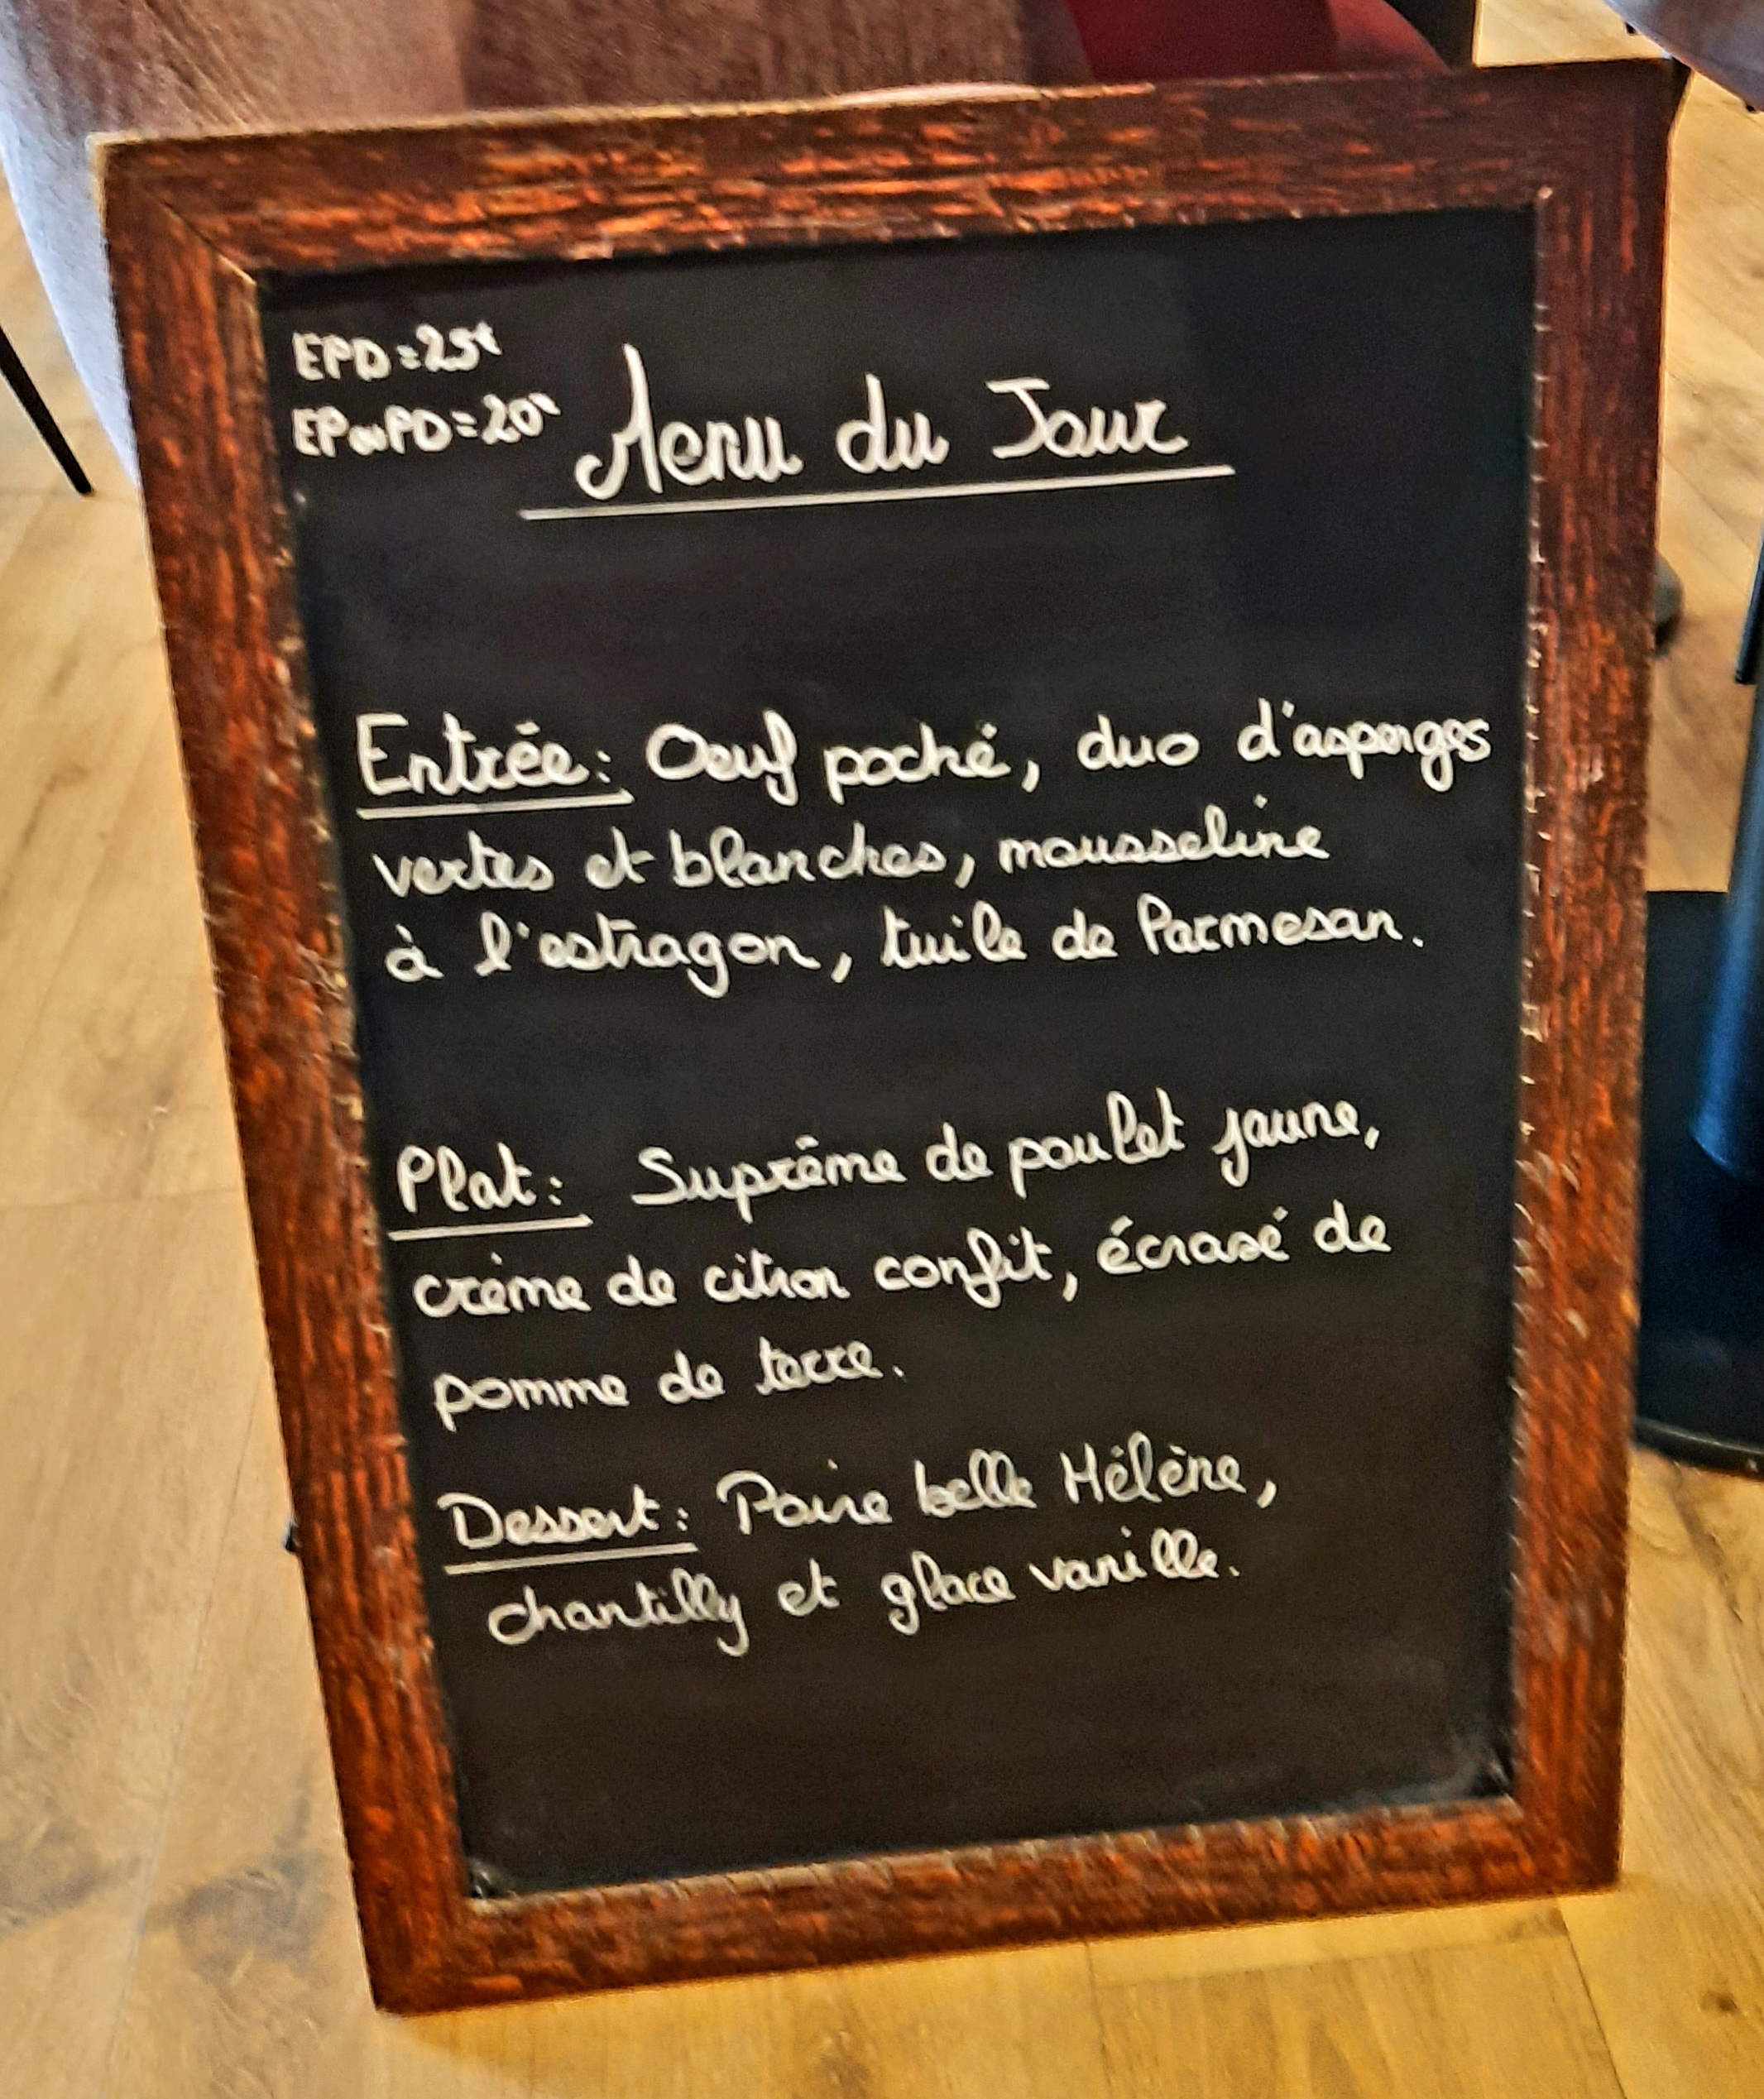 EPD = 25€
EP ou PD = 20€
Menu du Jour
Entrée : Oeuf poché, duo d'asperges
vertes et blanches, mousseline
à l'estragon, tuile de Parmesan.
Plat : Suprême de poulet jaune,
crème de citron confit, écrasé de
pomme de terre.
Dessert : Poire belle Hélène,
chantilly et glace vanille.